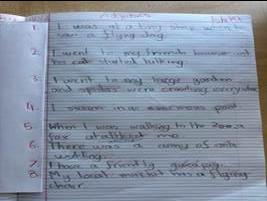 Adjectives
1. I was at a toy shop when I
saw a flying dog.
2. I went to my friends house and
the cat started talking.
3. I went to my large garden
and spiders were crawling everywhere
4. I swam in an enormous pool
5. When I was walking to the Zoo a
fox me
6. There was a army of ants
7. I have a friendly guineapig.
8. My local market has a flying
chair